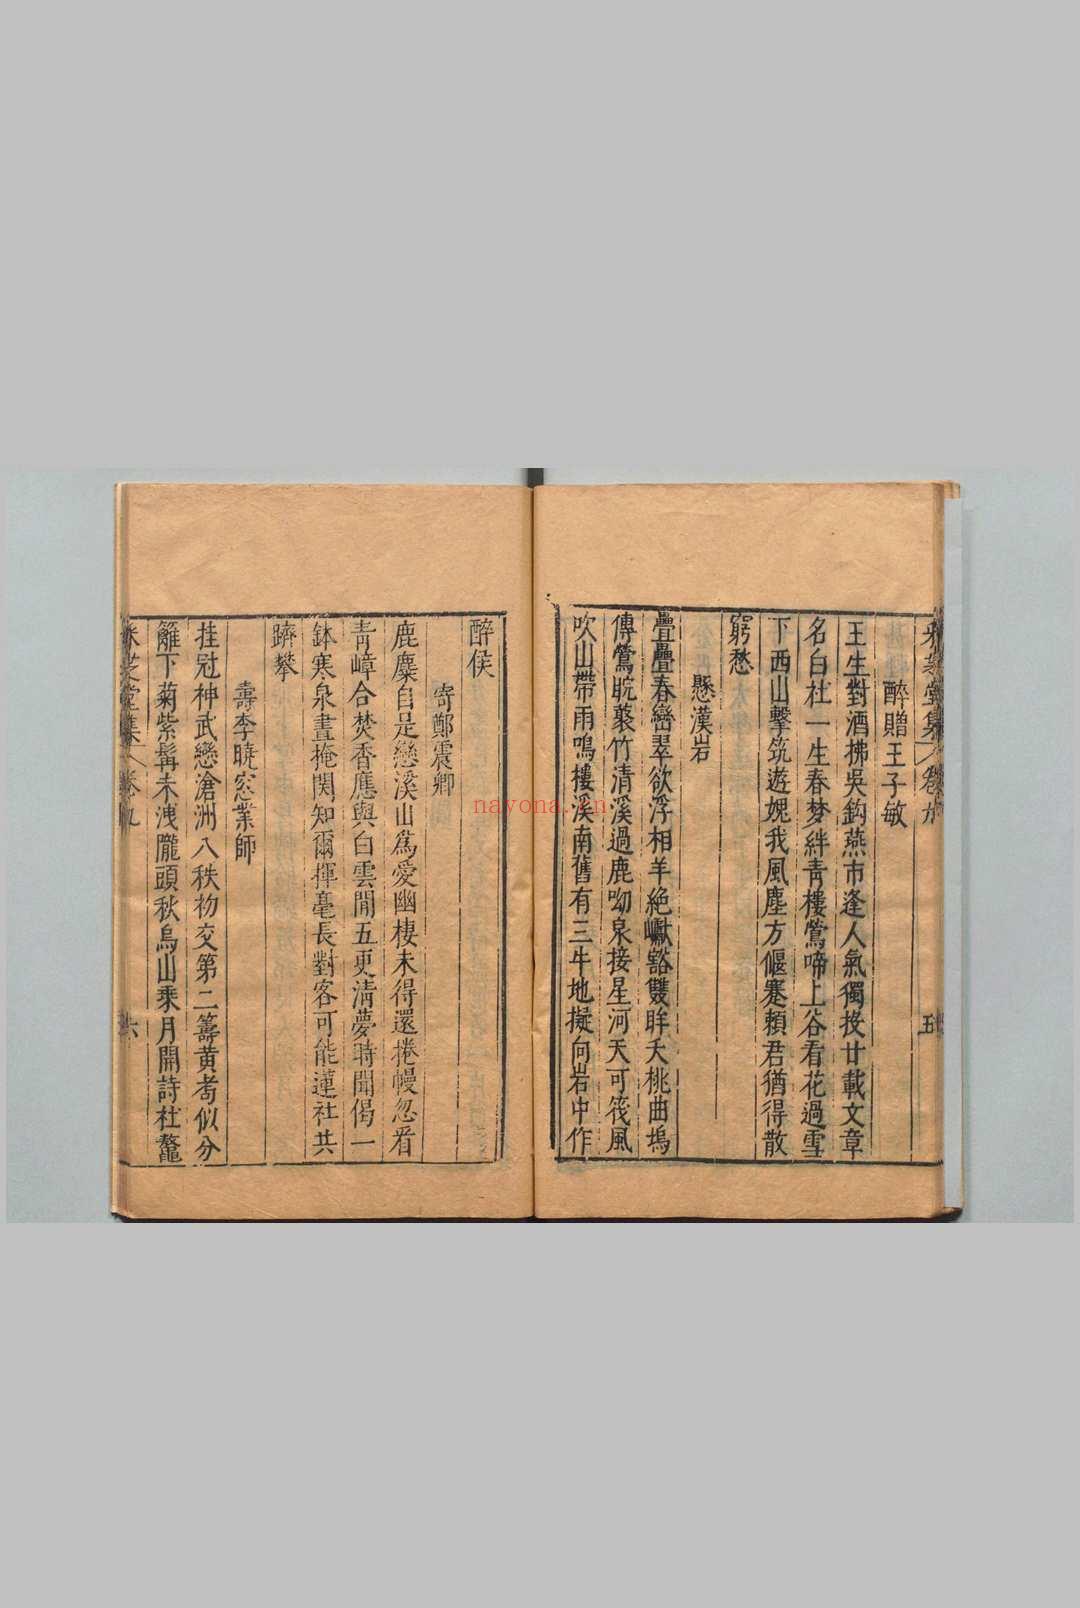 醉贈王子敏
王生對酒拂吳鈎燕市逢人氣獨投廿載文章
名白社一生春梦絆青樓鶯啼上谷看花過雪
下西山擊筑遊媿我風塵方偃蹇賴君猶得散
窮愁
懸漢岩
疊疊春巒翠欲浮相羊絶巘豁雙眸夭桃曲塢
傳鶯睆蘂竹清溪過鹿呦泉接星河天可筏風
吹山帶雨鳴樓溪南舊有三牛地擬向岩中作
醉侯
寄鄭震卿
鹿麋自是戀溪山爲愛幽棲未得還捲幔忽看
青嶂合焚香應與白雲閒五更清夢時聞偈一
鉢寒泉晝掩関知爾揮毫長對客可能蓮社共
躋攀
壽李曉窓業師
挂冠神武戀滄洲八秩初交第二籌黄考似分
籬下菊紫髯未洩隴頭秋烏山乘月開詩社鼇
采芝堂集 卷九
五
六
nayona.cn